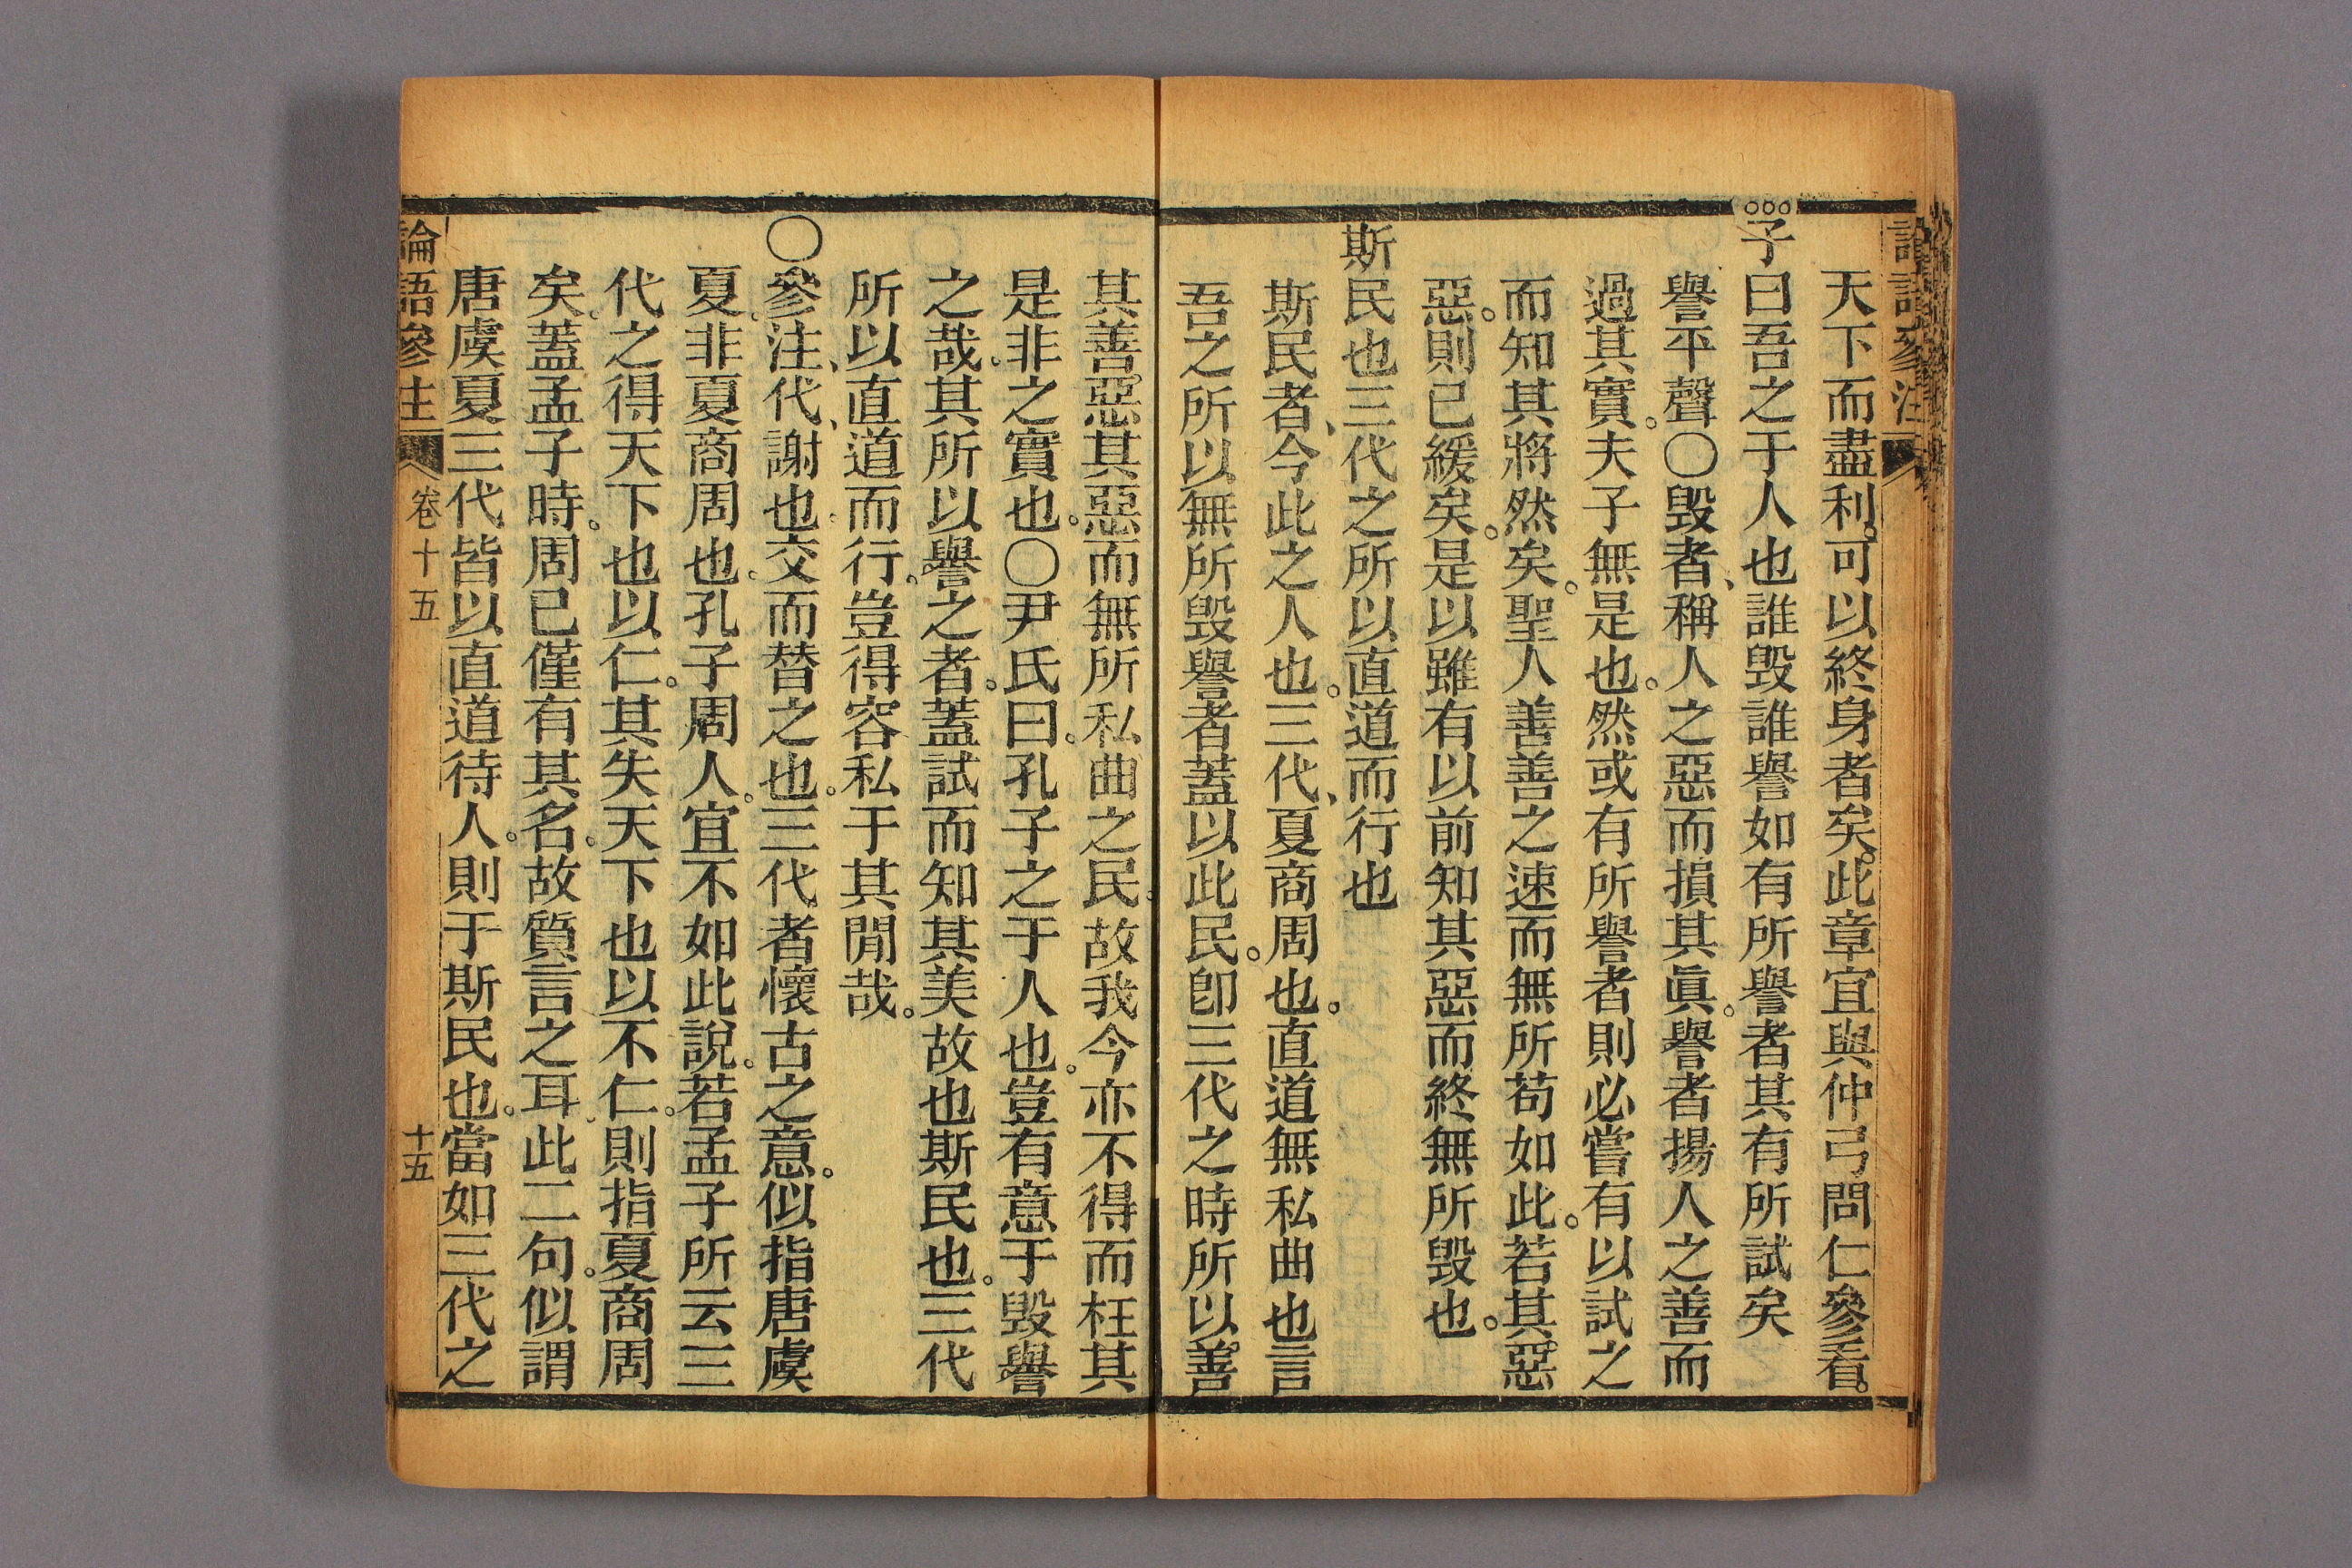 論語參注
天下而盡利。可以終身者矣。此章宜與仲弓問仁參看。
子曰吾之于人也誰毀誰譽如有所譽者其有所試矣
譽平聲○毀者、稱人之惡而損其眞。譽者揚人之善而
過其實。夫子無是也。然或有所譽者則必嘗有以試之
而知其將然矣。聖人善善之速而無所苟如此。若其惡
惡。則已緩矣。是以雖有以前知其惡而終無所毀也。
斯民也三代之所以直道而行也
斯民者、今此之人也。三代、夏商周也。直道無私曲也言
吾之所以無所毀譽者蓋以此民。卽三代之時所以善
其善惡其惡而無所私曲之民。故我今亦不得而枉其
是非之實也。○尹氏曰。孔子之于人也。豈有意于毀譽
之哉。其所以譽之者。蓋試而知其美故也斯民也。三代
所以直道而行。豈得容私于其閒哉。
○參注、代、謝也。交而替之也。三代者懷古之意。似指唐虞
夏。非夏商周也。孔子周人。宜不如此說。若孟子所云三
代之得天下也以仁。其失天下也以不仁。則指夏商周
矣。蓋孟子時。周已僅有其名。故質言之耳。此二句。似謂
唐虞夏三代皆以直道待人。則于斯民也。當如三代之
論語參注 卷十五 十五